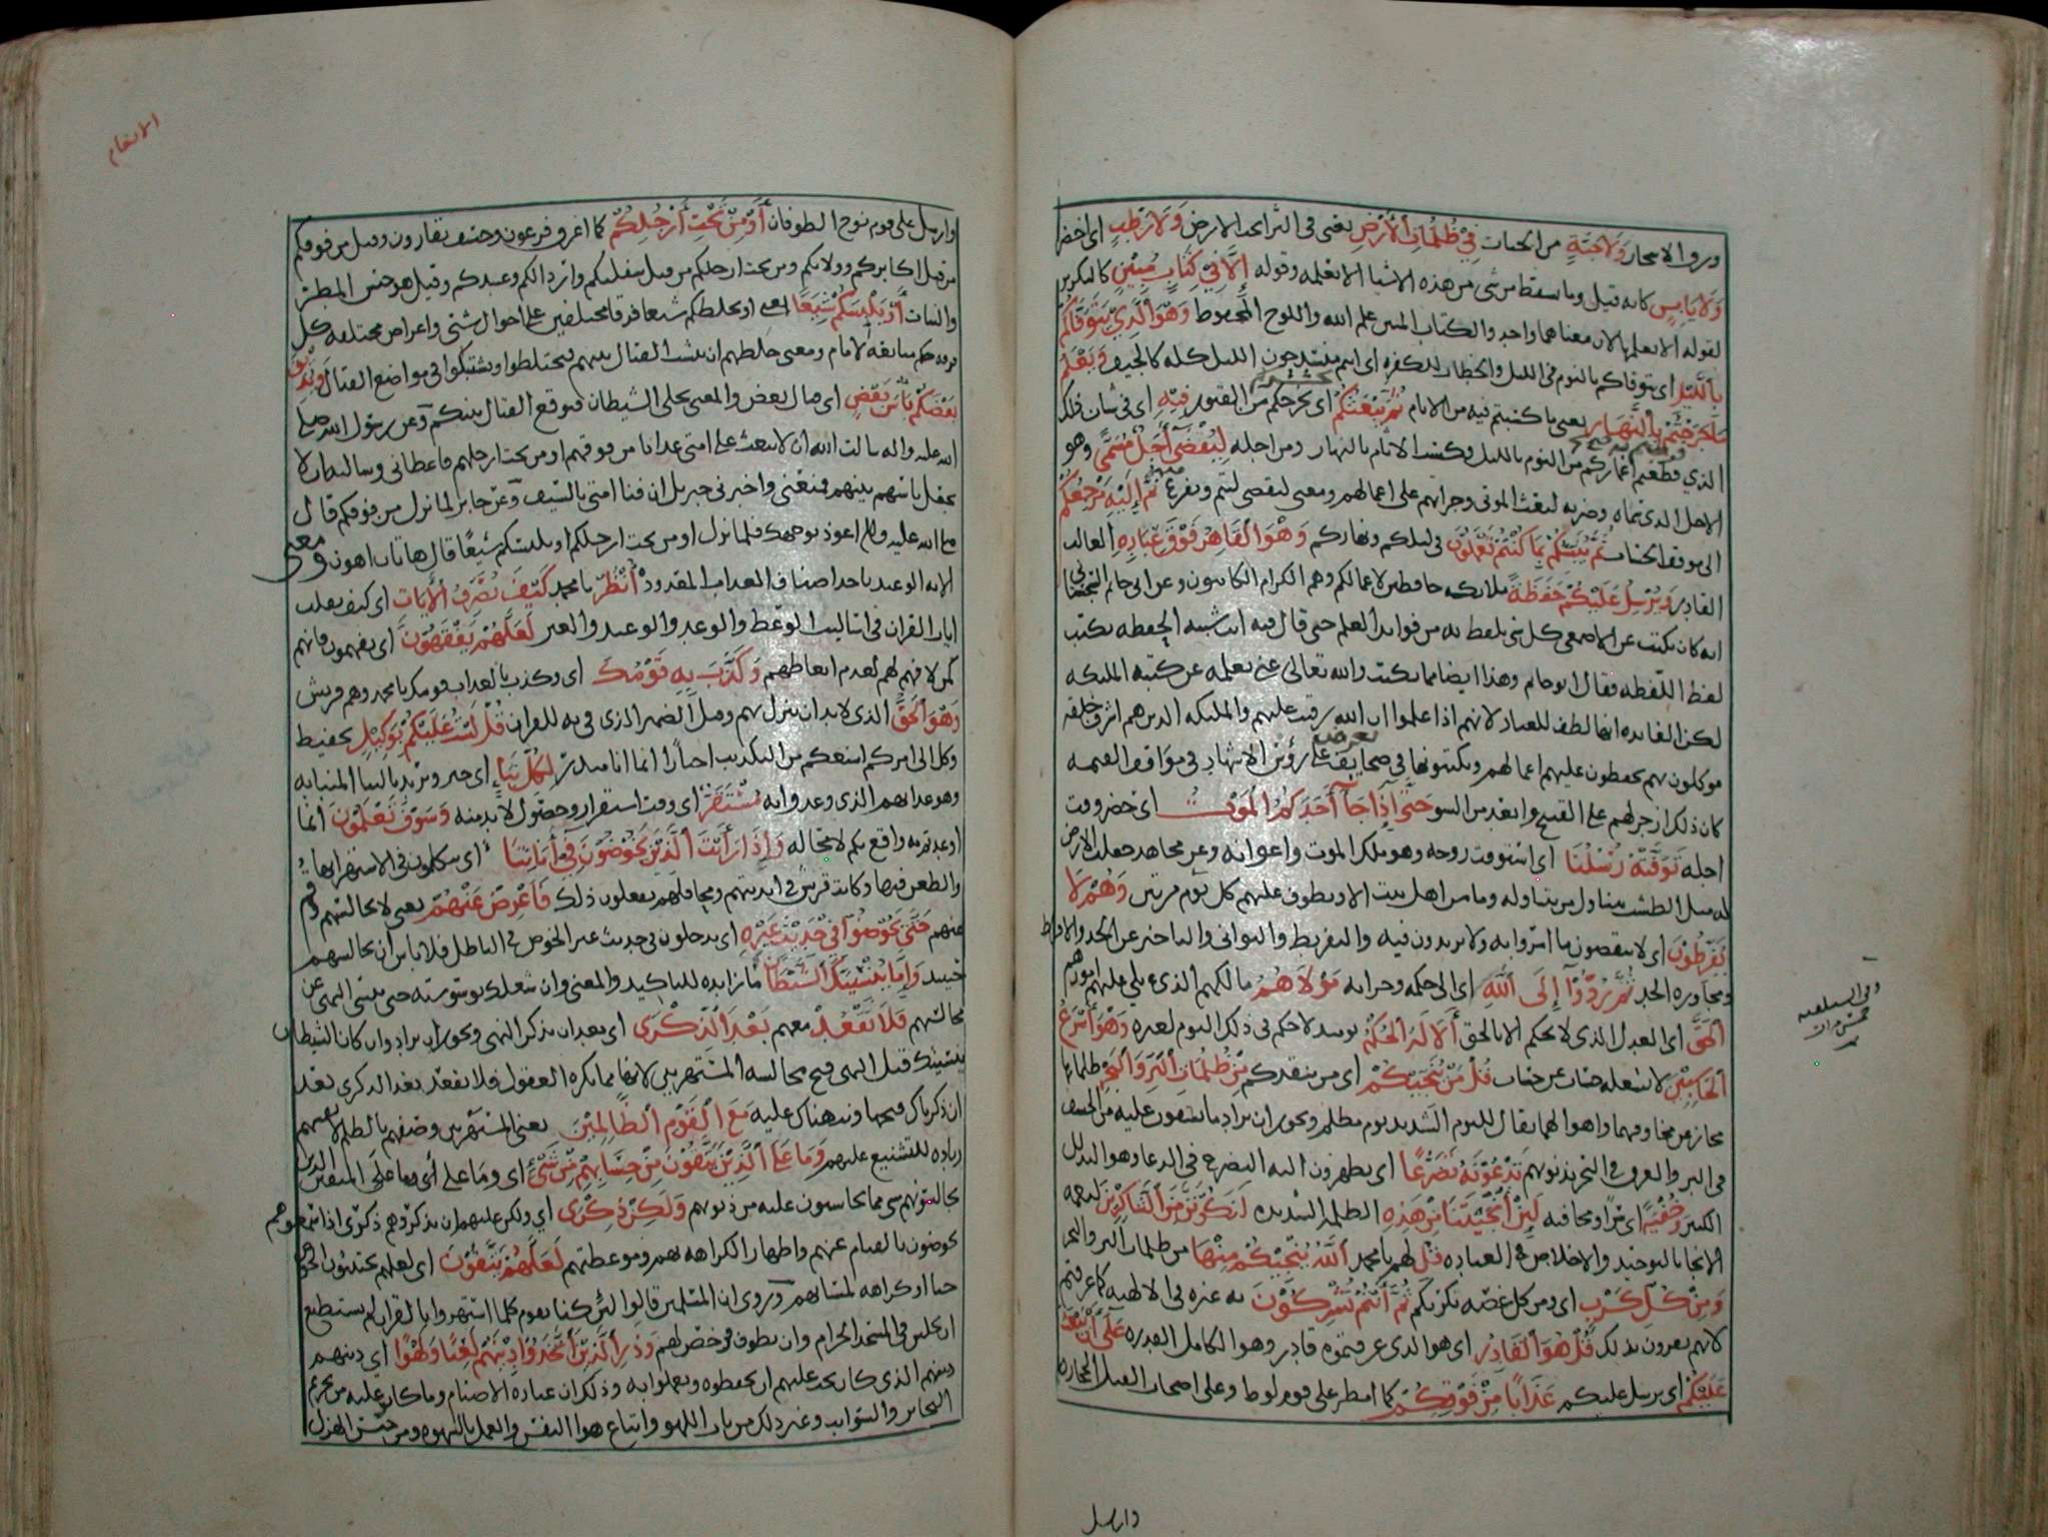 ورق الاشجار وَلَا حَبَّةٍ من الحبات فِي ظُلُمَاتِ الْأَرْضِ يعني في الثرا تحت الارض وَلَا رَطْبٍ اي اخضر
وَلَا يَابِسٍ كانه قيل وما يسقط من شي من هذه الاشيا الا يعلمه وقوله إِلَّا فِي كِتَابٍ مُبِينٍ كالتكرير
لقوله الا يعلمها لان معناهما واحد والكتاب المبين علم الله واللوح المحفوظ وَهُوَ الَّذِي يَتَوَفَّاكُمْ
بِاللَّيْلِ اي يتوفاكم بالنوم في الليل والخطاب للكفره اي انتم منسدحون الليل كله كالجيف وَيَعْلَمُ
مَا جَرَحْتُمْ بِالنَّهَارِ يعني ما كسبتم فيه من الاثام ثُمَّ يَبْعَثُكُمْ اي يخرجكم من القبور فِيهِ اي في شان ذلك
الذي قطعتم اعماركم من النوم بالليل وكسب الاثام بالنهار ومن اجله لِيُقْضَى أَجَلٌ مُسَمًّى وهو
الاجل الذي سماه وضربه لبعث الموتى وجزائهم على اعمالهم ومعنى ليقضى ليتم ويفرغ ثُمَّ إِلَيْهِ مَرْجِعُكُمْ
الى موقف الحساب ثُمَّ يُنَبِّئُكُمْ بِمَا كُنْتُمْ تَعْمَلُونَ في ليلكم ونهاركم وَهُوَ الْقَاهِرُ فَوْقَ عِبَادِهِ الغالب
القادر وَيُرْسِلُ عَلَيْكُمْ حَفَظَةً ملائكه حافظين لاعمالكم وهم الكرام الكاتبون وعن ابي حاتم السجستاني
انه كان يكتب عن الاصمعي كل شي يلفظ به من فوايد العلم حتى قال فيه انت شبيه الحفظه تكتب
لفظ اللفظه فقال ابو حاتم وهذا ايضا مما يكتب والله تعالى غني بعلمه عن كتبة الملئكه
لكن الفايده انها لطف للعباد لانهم اذا علموا ان الله رقيب عليهم والملئكه الذين هم اشرف خلقه
موكلون بهم يحفظون عليهم اعمالهم ويكتبونها في صحايف تعرض على رؤس الاشهاد في مواقف القيمه
كان ذلك ازجر لهم على القبيح وابعد من السو حَتَّى إِذَا جَاءَ أَحَدَكُمُ الْمَوْتُ اي حضر وقت
اجله تَوَفَّتْهُ رُسُلُنَا اي استوفت روحه وهو ملك الموت واعوانه وعن مجاهد جعلت الارض
له مثل الطشت يتناول من يتناوله وما من اهل بيت الا ويطوف عليهم كل يوم مرتين وَهُمْ لَا
يُفَرِّطُونَ اي لا ينقصون مما امروا به ولا يزيدون فيه والتفريط والتواني والتاخير عن الحد والافراط
ومجاوزه الحد ثُمَّ رُدُّوا إِلَى اللَّهِ اي الى حكمه وجزائه مَوْلَاهُمُ مالكهم الذي يلي عليهم امورهم
الْحَقِّ اي العدل الذي لا يحكم الا بالحق أَلَا لَهُ الْحُكْمُ يوميذ لا حكم في ذلك اليوم لغيره وَهُوَ أَسْرَعُ
الْحَاسِبِينَ لا يشغله حساب عن حساب قُلْ مَنْ يُنَجِّيكُمْ اي من ينقذكم مِنْ ظُلُمَاتِ الْبَرِّ وَالْبَحْرِ ظلماتها
مجاز عن مخاوفهما واهوالهما يقال لليوم الشديد يوم مظلم ويجوز ان يراد ما يشفون عليه من الخسف
في البر والغرق في البحر بذنوبهم تَدْعُونَهُ تَضَرُّعًا اي يظهرون اليه التضرع في الدعا وهو التذلل
الكثير وَخُفْيَةً اي سرا ومخافيه لَئِنْ أَنْجَيْتَنَا مِنْ هَذِهِ الظلمه الشديده لَنَكُونَنَّ مِنَ الشَّاكِرِينَ لنعمه
الانجا بالتوحيد والاخلاص في العباده قُلِ لهم يا محمد اللَّهُ يُنَجِّيكُمْ مِنْهَا من ظلمات البر والبحر
وَمِنْ كُلِّ كَرْبٍ اي ومن كل غصه تكربكم ثُمَّ أَنْتُمْ تُشْرِكُونَ به غيره في الالهيه كما عرفتم
لانهم يقرون بذلك قُلْ هُوَ الْقَادِرُ اي هو الذي عرفتموه قادر وهو الكامل القدره عَلَى أَنْ يَبْعَثَ
عَلَيْكُمْ اي يرسل عليكم عَذَابًا مِنْ فَوْقِكُمْ كما امطر على قوم لوط وعلى اصحاب الفيل الحجاره
وارسل
الانعام
وارسل على قوم نوح الطوفان أَوْ مِنْ تَحْتِ أَرْجُلِكُمْ كما اغرق فرعون وخسف بقارون وقيل من فوقكم
من قبل اكابركم وولاتكم ومن تحت ارجلكم من قبل سفلتكم واراذلكم وعبيدكم وقيل هو حبس المطر
والنبات أَوْ يَلْبِسَكُمْ شِيَعًا يعني او يخلطكم شيعا فرقا مختلفين على احوال شتى واغراض مختلفه كل
فرقه منكم متابعه لامام ومعنى خلطهم ان ينشب القتال بينهم فيختلطوا ويشتبكوا في مواضع القتال وَيُذِيقَ
بَعْضَكُمْ بَأْسَ بَعْضٍ اي قتال بعض والمعنى يخلي الشيطان فيوقع القتال بينكم وعن رسول الله صلى
الله عليه واله سالت الله ان لا يبعث على امتي عذابا من فوقهم او من تحت ارجلهم فاعطاني وسالته ان لا
يجعل باسهم بينهم فمنعني واخبرني جبريل ان فنا امتي بالسيف وعن جابر لما نزل من فوقكم قال
صلى الله عليه واله اعوذ بوجهك فلما نزل او من تحت ارجلكم او يلبسكم شيعا قال هاتان اهون ومعنى
الايه الوعيد باحد اصناف العذاب المعدوده انْظُرْ يا محمد كَيْفَ نُصَرِّفُ الْآيَاتِ اي كيف نقلب
ايات القران في اساليب الوعظ والوعد والوعيد والعبر لَعَلَّهُمْ يَفْقَهُونَ اي يفهمون فانهم
كمن لا فهم لهم لعدم اتعاظهم وَكَذَّبَ بِهِ قَوْمُكَ اي وكذب بالعذاب قومك يا محمد وهم قريش
وَهُوَ الْحَقُّ الذي لا بد ان ينزل بهم وقيل الضمير الذي في به للقران قُلْ لَسْتُ عَلَيْكُمْ بِوَكِيلٍ بحفيظ
وكل الى امركم امنعكم من التكذيب اجبارا انما انا منذر لِكُلِّ نَبَإٍ اي خبر ويريد بالنبا المنبا به
وهو عذابهم الذي وعدوا به مُسْتَقَرٌّ اي وقت استقرار وحصول لا بد منه وَسَوْفَ تَعْلَمُونَ انما
اوعدتم به واقع بكم لا محاله وَإِذَا رَأَيْتَ الَّذِينَ يَخُوضُونَ فِي آيَاتِنَا اي يتكلمون في الاستهزا بها
والطعن فيها وكانت قريش في انديتهم ومحافلهم يفعلون ذلك فَأَعْرِضْ عَنْهُمْ يعني لا تجالسهم وقم
عنهم حَتَّى يَخُوضُوا فِي حَدِيثٍ غَيْرِهِ اي يدخلون في حديث غير الخوض في الباطل فلا باس ان تجالسهم
حينيذ وَإِمَّا يُنْسِيَنَّكَ الشَّيْطَانُ ما زايده للتاكيد والمعنى وان شغلك بوسوسته حتى نسيت النهي عن
مجالستهم فَلَا تَقْعُدْ معهم بَعْدَ الذِّكْرَى اي بعد ان تذكر النهي ويجوز ان يراد وان كان الشيطان
ينسينك قبل النهي قبح مجالسه المستهزيين لانها مما ينكره العقول فلا تقعد بعد الذكرى بعد
ان ذكرناك قبحها ونبهناك عليه مَعَ الْقَوْمِ الظَّالِمِينَ يعني المستهزيين وصفهم بالظلم لانفسهم
زياده للتشنيع عليهم وَمَا عَلَى الَّذِينَ يَتَّقُونَ مِنْ حِسَابِهِمْ مِنْ شَيْءٍ اي وما على المتقين الذين
يجالسونهم شي مما يحاسبون عليه من ذنوبهم وَلَكِنْ ذِكْرَى اي ولكن عليهم ان يذكروهم ذكرى اذا سمعوهم
يخوضون بالقيام عنهم واظهار الكراهه لهم وموعظتهم لَعَلَّهُمْ يَتَّقُونَ اي لعلهم يجتنبون الخوض
حيا او كراهه لمساتهم وروي ان المسلمين قالوا لئن كنا نقوم كلما استهزوا بالقران لم نستطع
ان نجلس في المسجد الحرام وان نطوف فرخص لهم وَذَرِ الَّذِينَ اتَّخَذُوا دِينَهُمْ لَعِبًا وَلَهْوًا اي دينهم
دينهم الذي كان يجب عليهم ان يحفظوه ويعملوا به وذلك ان عباده الاصنام وما كانوا عليه من تحريم
البحاير والسوايب وغير ذلك من باب اللهو واتباع هوا النفس والعمل بالشهوه ومن جنس الهزل